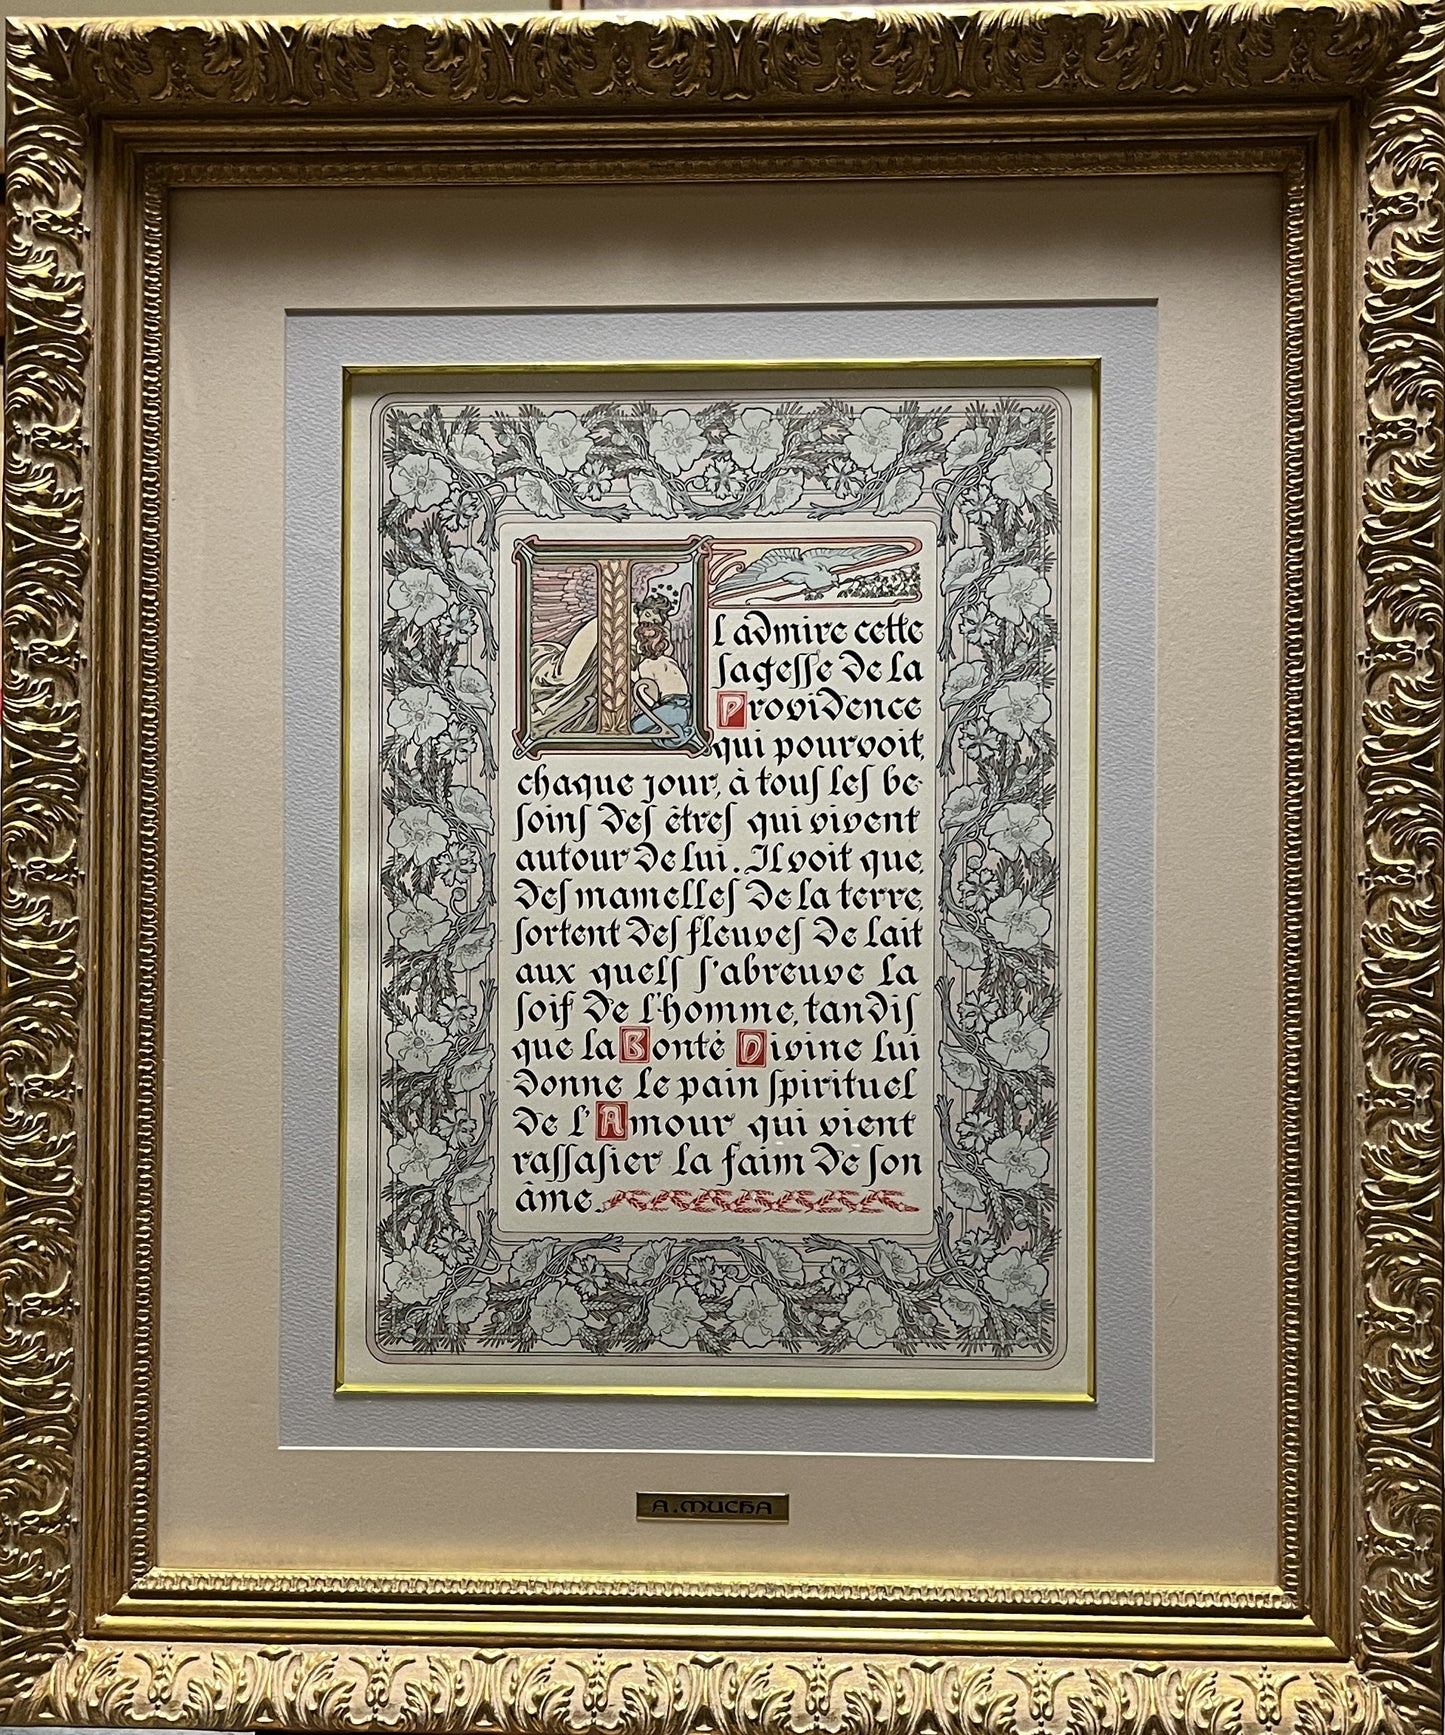 Il admire cette
sagesse de la
Providence
qui pourvoit,
chaque jour, à tous les be-
soins des êtres qui vivent
autour de lui. Il voit que,
des mamelles de la terre,
sortent des fleuves de lait
aux quels s'abreuve la
soif de l'homme, tandis
que la Bonté Divine lui
donne le pain spirituel
de l'Amour qui vient
rassasier la faim de son
âme.
A. MUCHA